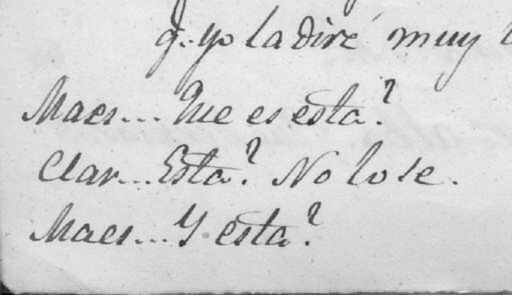 q.e yo la diré muy
Maes... Que es esta?
Clar... Esta? No lo se.
Maes... Y esta?